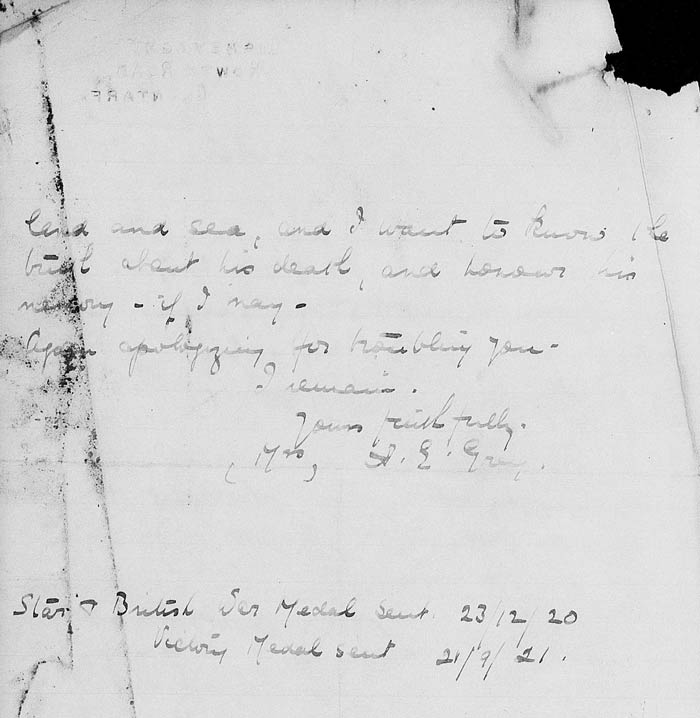 land and sea, and I want to know the
truth about his death, and honour his
memory - if I may -
Again apologizing for troubling you -
I remain.
Yours faithfully.
(Mrs) E. Grey.
Star & British War Medal sent 23/12/20
Victory Medal sent 21/9/21.